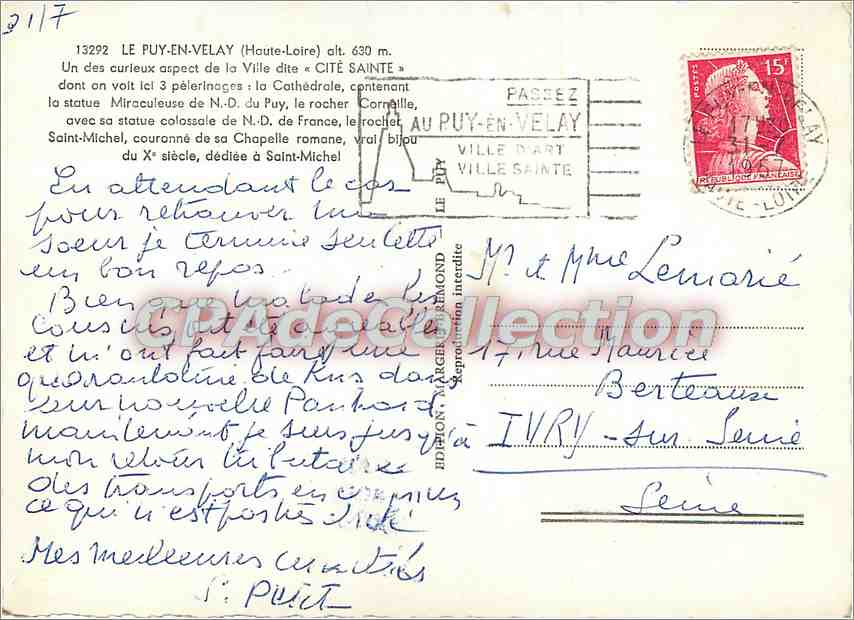 31/7
13292 LE PUY-EN-VELAY (Haute-Loire) alt. 630 m.
Un des curieux aspect de la Ville dite « CITÉ SAINTE »
dont on voit ici 3 pèlerinages : la Cathédrale, contenant
la statue Miraculeuse de N.-D. du Puy, le rocher Corneille,
avec sa statue colossale de N.-D. de France, le rocher
Saint-Michel, couronné de sa Chapelle romane, vrai bijou
du Xe siècle, dédiée à Saint-Michel
En attendant le car
pour retrouver ma
soeur je termine
en bon repos.
Bien que malade les
cousins ont été aimables
et m'ont fait faire une
quarantaine de Kms dans
leur nouvelle Panhard
maintenant je suis jusqu'à
mon retour tributaire
des transports en commun
ce qui n'est pas très
Mes meilleures amitiés
PASSEZ
AU PUY-EN-VELAY
VILLE D'ART
VILLE SAINTE
LE PUY
POSTES
15F
RÉPUBLIQUE FRANÇAISE
LE PUY-EN-VELAY
31
HAUTE-LOIRE
EDITION - MARGERIT-BREMOND
Reproduction interdite
Mr et Mme Lemarié
17, rue Maurice
Berteaux
IVRY-sur Seine
Seine
CPAdeCollection